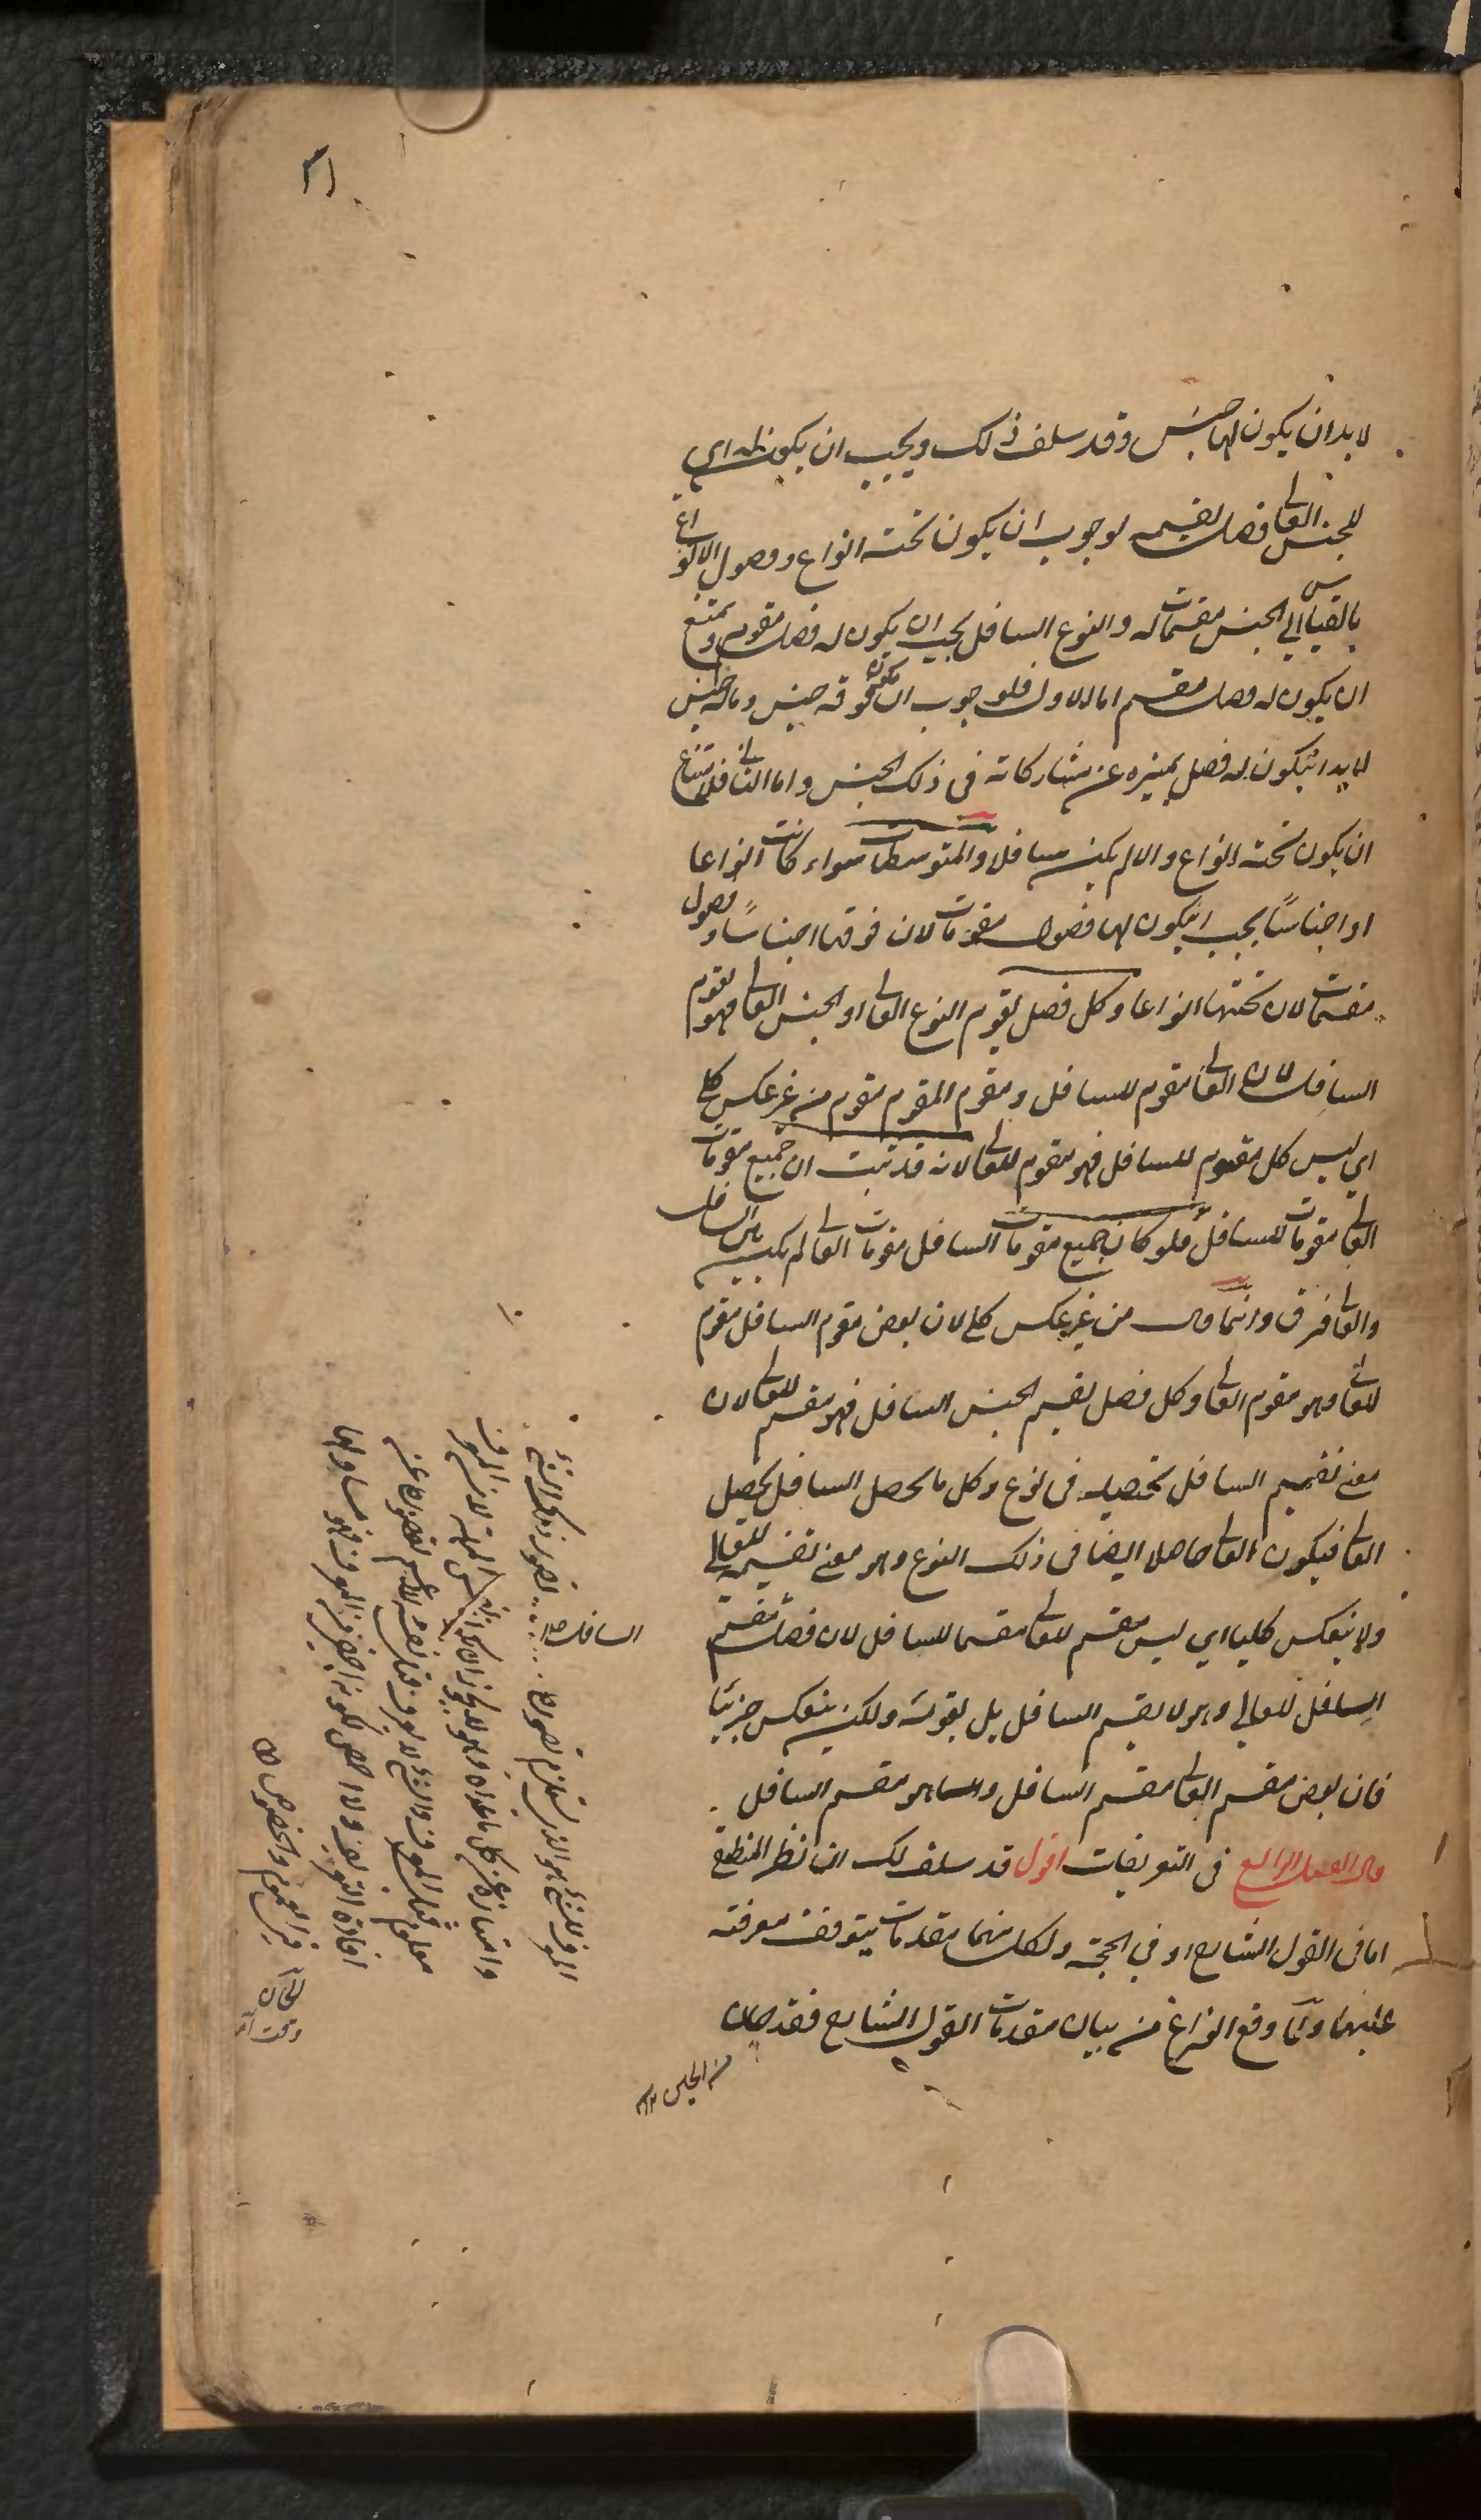 ٣١
لا بد ان يكون لها جنس وقد سلف ذلك ويجب ان يكون له اي
للجنس العالي فصل يقسمه لوجوب ان يكون تحته انواع وفصول الانواع
بالقياس الي الجنس مقسمات له والنوع السافل يجب ان يكون له فصل مقوم ويمتنع
ان يكون له فصل مقسم اما الاول فلوجوب ان يكون فوقه جنس وما له جنس
لا بد ان يكون له فصل يميزه عن مشاركاته في ذلك الجنس واما الثاني فلامتناع
ان يكون تحته انواع والا لم يكن سافلا والمتوسطات سواء كانت انواعا
او اجناسًا يجب ان يكون لها فصول مقومات لان فوقها اجناسًا وفصول
مقسمات لان تحتها انواعا وكل فصل يقوم النوع العالي او الجنس العالي فهو يقوم
السافل لان العالي مقوم للسافل ومقوم المقوم مقوم من غير عكس كلي
اي ليس كل مقوم للسافل فهو مقوم للعالي لانه قد ثبت ان جميع مقومات
العالي مقومات للسافل فلو كان جميع مقومات السافل مقومات العالي لم يكن بين السافل
والعالي فرق وانما قال من غير عكس كلي لان بعض مقوم السافل مقوم
للعالي وهو مقوم العالي وكل فصل يقسم الجنس السافل فهو مقسم للعالي لان
معني تقسيم السافل تحصيله في نوع وكل ما يحصل السافل يحصل
العالي فيكون العالي حاصلا ايضا في ذلك النوع وهو معني تقسيمه للعالي
ولا ينعكس كليا اي ليس مقسم للعالي مقسما للسافل لان فصل مقسم
السافل للعالي وهو لا يقسم السافل بل يقومه ولكن ينعكس جزئيا
فان بعض مقسم العالي مقسم السافل وهو مقسم السافل
قال الفصل الرابع في التعريفات اقول قد سلف لك ان نظر المنطقي
اما في القول الشارح او في الحجة ولكل منهما مقدمات يتوقف معرفته
عليها ولما وقع الفراغ من بيان مقدمات القول الشارح فقد حان
السافل
المعرف للشيء هو الذي يستلزم تصوره تصور ذلك الشيء
معلوم قبل المعرف والشيء لا يعرف قبل نفسه